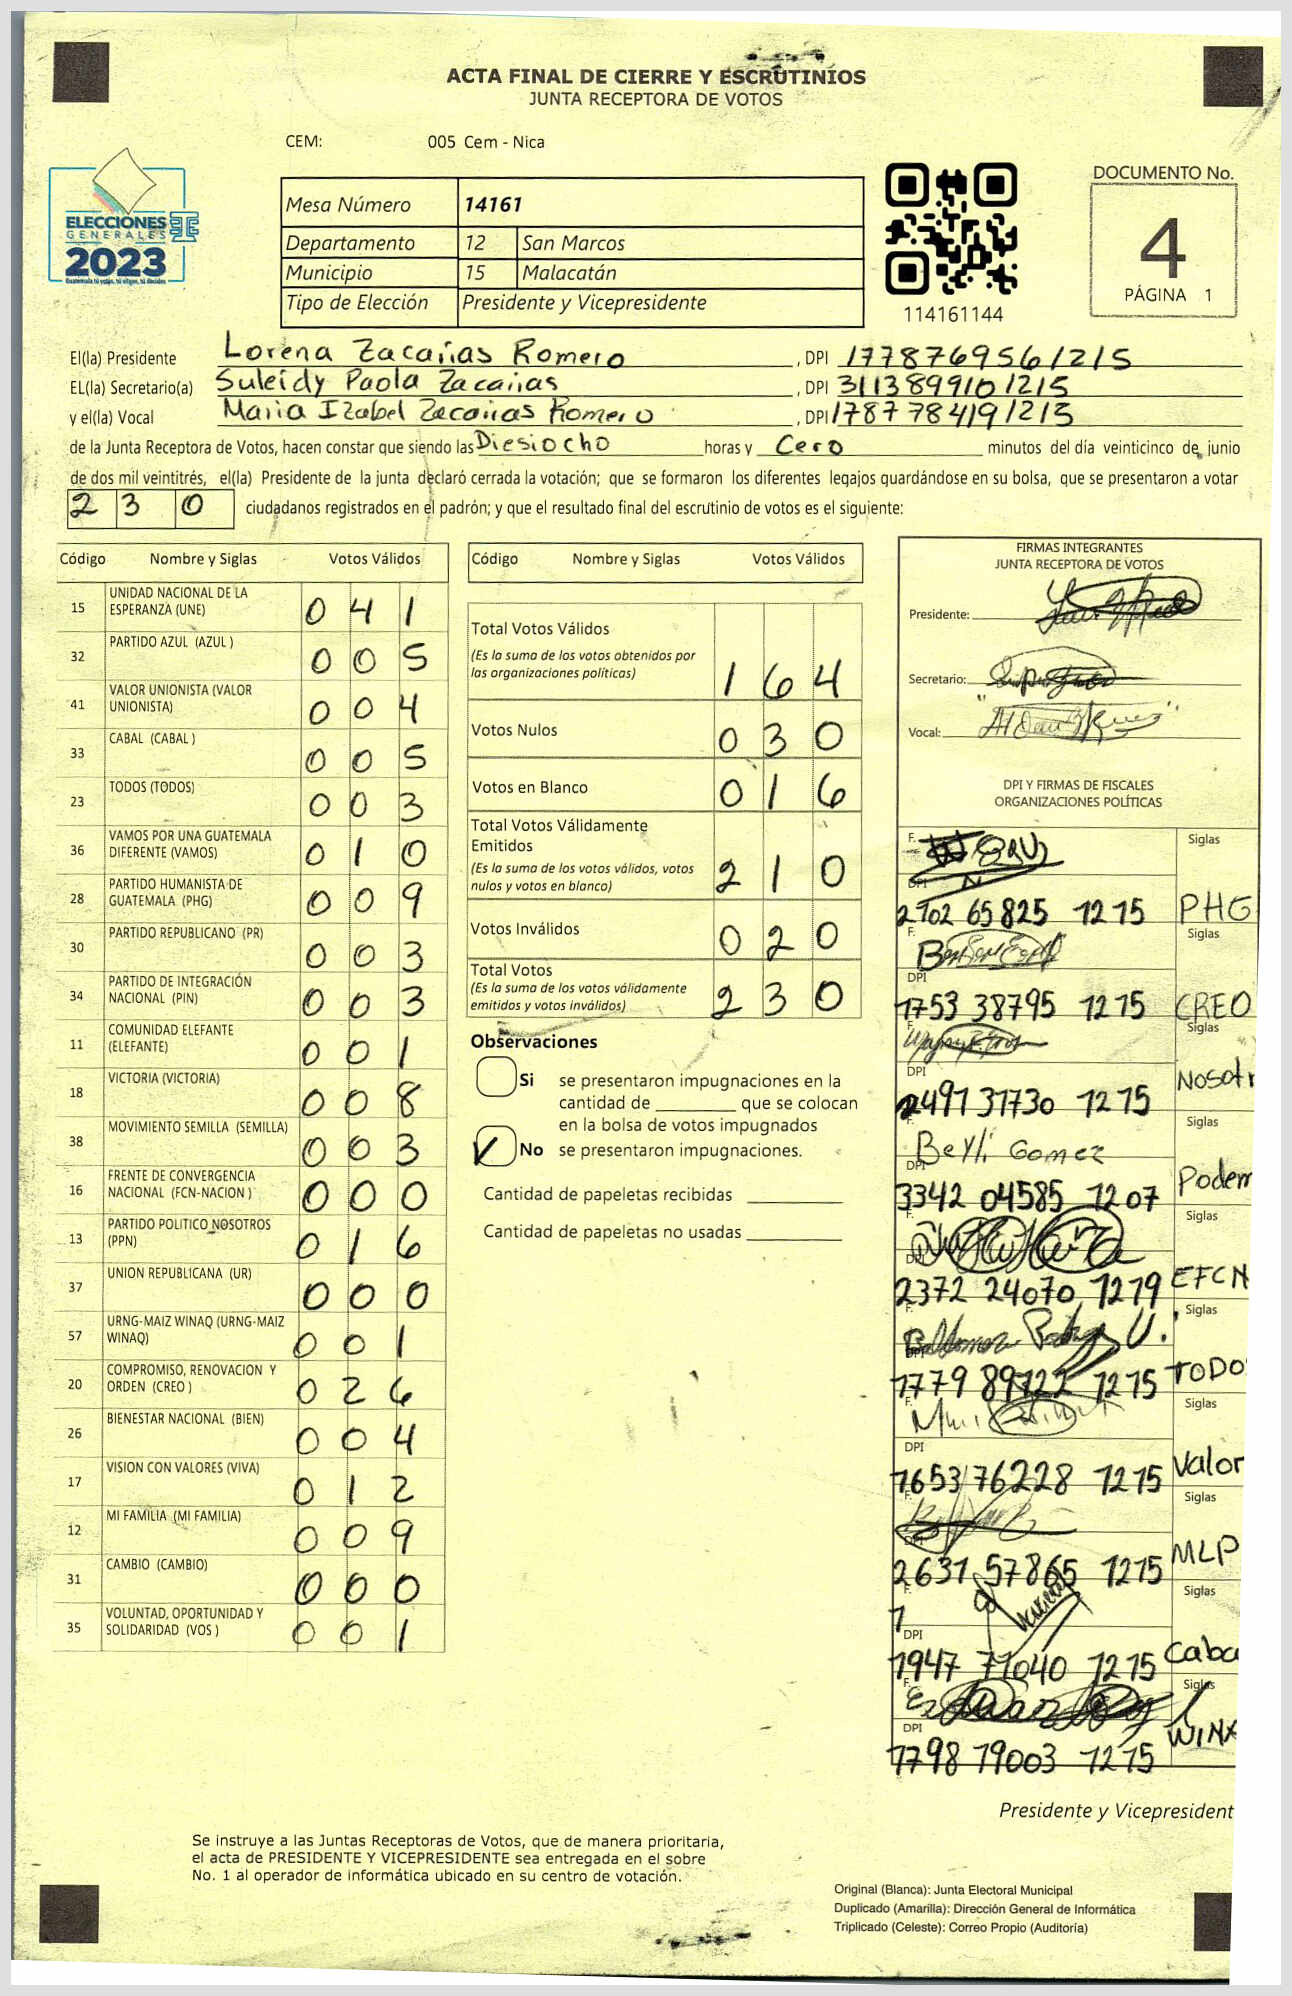 ACTA FINAL DE CIERRE Y ESCRUTINIOS
JUNTA RECEPTORA DE VOTOS
CEM: 005 Cem - Nica
ELECCIONES
GENERALES
2023
Guatemala tú votas, tú eliges, tú decides
Mesa Número 14161
Departamento 12 San Marcos
Municipio 15 Malacatán
Tipo de Elección Presidente y Vicepresidente
114161144
DOCUMENTO No.
4
PÁGINA 1
El(la) Presidente Lorena Zacarías Romero, DPI 1778769561215
EL(la) Secretario(a) Suleidy Paola Zacarías, DPI 3113899101215
y el(la) Vocal Maria Izabel Zacarias Romero, DPI 1787784191215
de la Junta Receptora de Votos, hacen constar que siendo las Diesiocho horas y Cero minutos del día veinticinco de junio
de dos mil veintitrés, el(la) Presidente de la junta declaró cerrada la votación; que se formaron los diferentes legajos guardándose en su bolsa, que se presentaron a votar
2 3 0 ciudadanos registrados en el padrón; y que el resultado final del escrutinio de votos es el siguiente:
Código Nombre y Siglas Votos Válidos
15 UNIDAD NACIONAL DE LA ESPERANZA (UNE) 0 4 1
32 PARTIDO AZUL (AZUL ) 0 0 5
41 VALOR UNIONISTA (VALOR UNIONISTA) 0 0 4
33 CABAL (CABAL ) 0 0 5
23 TODOS (TODOS) 0 0 3
36 VAMOS POR UNA GUATEMALA DIFERENTE (VAMOS) 0 1 0
28 PARTIDO HUMANISTA DE GUATEMALA (PHG) 0 0 9
30 PARTIDO REPUBLICANO (PR) 0 0 3
34 PARTIDO DE INTEGRACIÓN NACIONAL (PIN) 0 0 3
11 COMUNIDAD ELEFANTE (ELEFANTE) 0 0 1
18 VICTORIA (VICTORIA) 0 0 8
38 MOVIMIENTO SEMILLA (SEMILLA) 0 0 3
16 FRENTE DE CONVERGENCIA NACIONAL (FCN-NACION ) 0 0 0
13 PARTIDO POLITICO NOSOTROS (PPN) 0 1 6
37 UNION REPUBLICANA (UR) 0 0 0
57 URNG-MAIZ WINAQ (URNG-MAIZ WINAQ) 0 0 1
20 COMPROMISO, RENOVACION Y ORDEN (CREO ) 0 2 6
26 BIENESTAR NACIONAL (BIEN) 0 0 4
17 VISION CON VALORES (VIVA) 0 1 2
12 MI FAMILIA (MI FAMILIA) 0 0 9
31 CAMBIO (CAMBIO) 0 0 0
35 VOLUNTAD, OPORTUNIDAD Y SOLIDARIDAD (VOS ) 0 0 1
Código Nombre y Siglas Votos Válidos
Total Votos Válidos
(Es la suma de los votos obtenidos por
las organizaciones políticas) 1 6 4
Votos Nulos 0 3 0
Votos en Blanco 0 1 6
Total Votos Válidamente
Emitidos
(Es la suma de los votos válidos, votos
nulos y votos en blanco) 2 1 0
Votos Inválidos 0 2 0
Total Votos
(Es la suma de los votos válidamente
emitidos y votos inválidos) 2 3 0
Observaciones
Si se presentaron impugnaciones en la
cantidad de ________ que se colocan
en la bolsa de votos impugnados
No se presentaron impugnaciones.
Cantidad de papeletas recibidas
Cantidad de papeletas no usadas
FIRMAS INTEGRANTES
JUNTA RECEPTORA DE VOTOS
Presidente:
Secretario:
Vocal:
DPI Y FIRMAS DE FISCALES
ORGANIZACIONES POLÍTICAS
F. Siglas
DPI 2702 65825 1215 PHG
F. Siglas
DPI 1753 38795 1215 CREO
F. Siglas
DPI 2491 31730 1215 Nosotr
F. Beyli Gomez Siglas
DPI 3342 04585 1207 Podem
F. Siglas
DPI 2372 24070 1219 EFCN
F. Siglas
DPI 1779 89722 1215 TODO
F. Siglas
DPI 1653 76228 1215 Valor
F. Siglas
DPI 2631 57865 1215 MLP
F. Siglas
DPI 1947 71040 1215 Caba
F. Siglas
DPI 1798 19003 1215 WINX
Presidente y Vicepresident
Se instruye a las Juntas Receptoras de Votos, que de manera prioritaria,
el acta de PRESIDENTE Y VICEPRESIDENTE sea entregada en el sobre
No. 1 al operador de informática ubicado en su centro de votación.
Original (Blanca): Junta Electoral Municipal
Duplicado (Amarilla): Dirección General de Informática
Triplicado (Celeste): Correo Propio (Auditoría)